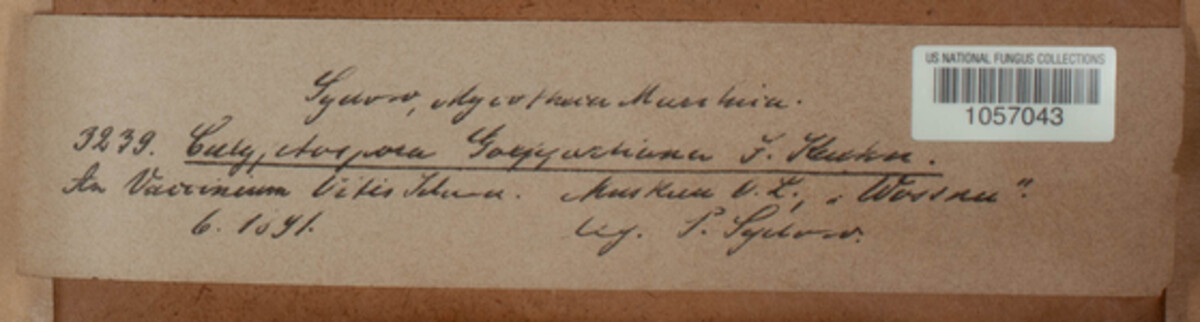 Sydow, Mycotheca Marchica.
US NATIONAL FUNGUS COLLECTIONS
1057043
3239. Calyptospora Goeppertiana J. Kuehn.
An Vaccinium Vitis Idaea. Muskau O. L., „Wossna“.
6. 1891. leg. P. Sydow.